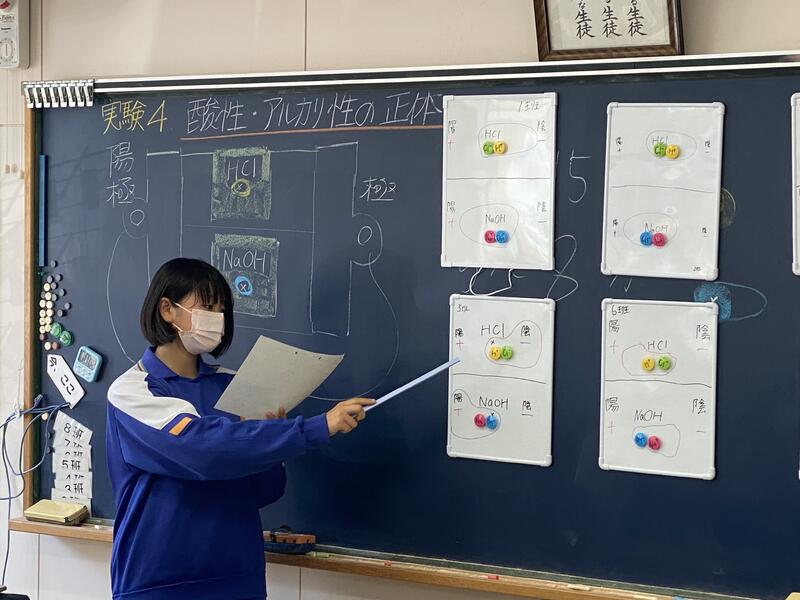 生徒
生徒
な生徒
実験4 酸性・アルカリ性の正体
陽極
極
HCl
×
NaOH
×
1班
陽 陰
+ −
HCl
陽 陰
+ −
NaOH
陽 陰
+ −
HCl
陽 陰
+ −
NaOH
5班
陽 陰
+ −
HCl
陽 陰
+ −
NaOH
6班
陽 陰
+ −
HCl
陽 陰
+ −
NaOH
15
ここ
8班
7班
5班
4班
3班